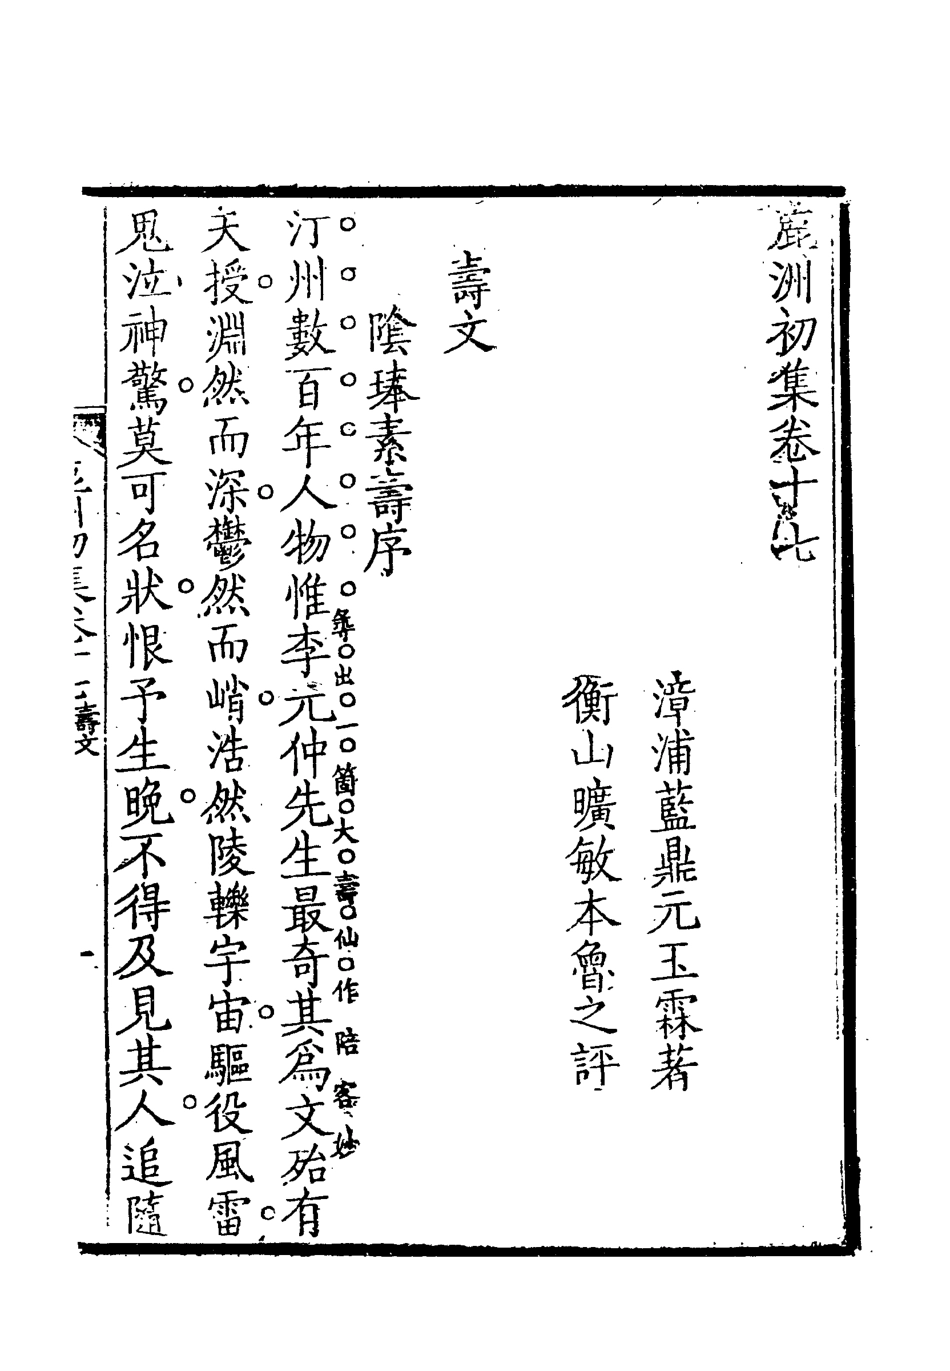 鹿洲初集卷十七
漳浦藍鼎元玉霖著
衡山曠敏本魯之評
壽文
陰琫素壽序
汀州數百年人物惟李元仲先生最奇其爲文殆有
尋出一箇大壽仙作陪客妙
天授淵然而深鬱然而峭浩然陵轢宇宙驅役風雷
鬼泣神驚莫可名狀恨予生晚不得及見其人追隨
鹿洲初集卷十七
壽文
一